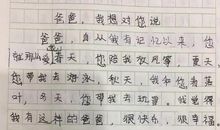 爸爸,我想对你说
爸爸,自从我有记忆以来,您
春天,您陪我放风筝,夏天
您带我去海边,秋天,我和您看落
叶,冬天,您带我去玩雪。我觉得
我有这样的爸爸,很快乐,很幸福